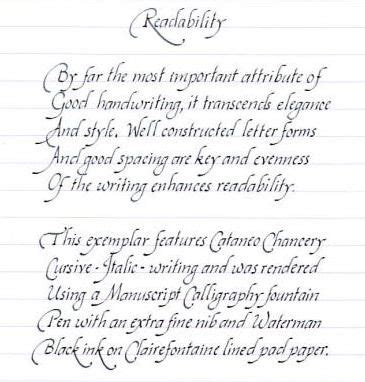 Readability
By far the most important attribute of
Good handwriting, it transcends elegance
And style. Well constructed letter forms
And good spacing are key and evenness
Of the writing enhances readability.
This exemplar features Cataneo Chancery
Cursive - Italic - writing and was rendered
Using a Manuscript Calligraphy fountain
Pen with an extra fine nib and Waterman
Black ink on Clairefontaine lined pad paper.